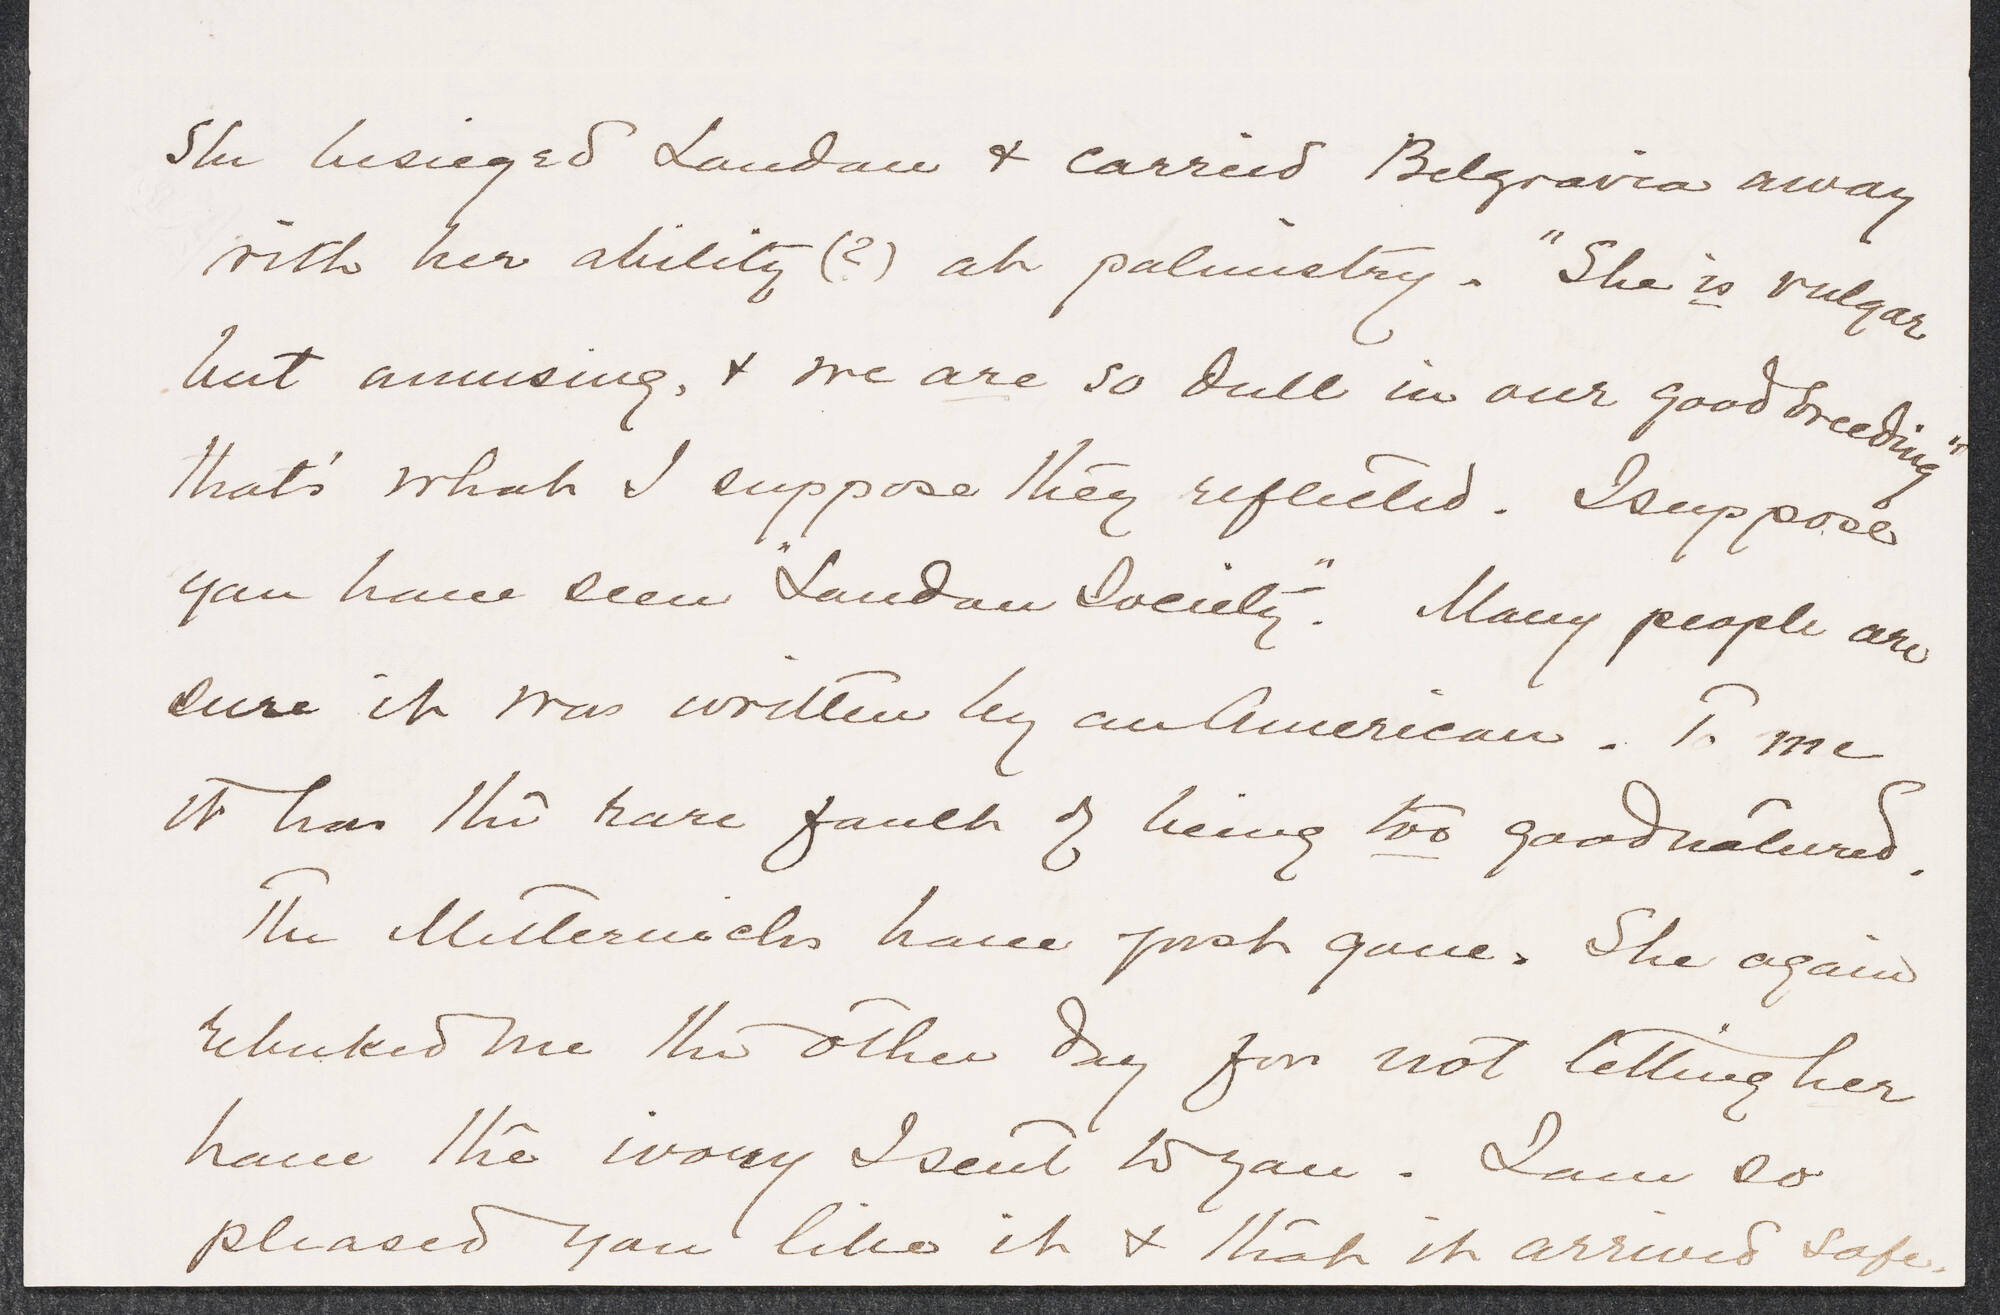 She besieged London & carried Belgravia away
with her ability (?) at palmistry. "She is vulgar
but amusing, & we are so dull in our good breeding"
that's what I suppose they reflected. I suppose
you have seen "London Society". Many people are
sure it was written by an American. To me
it has the rare fault of being too goodnatured.
The Metternichs have just gone. She again
rebuked me the other day for not letting her
have the ivory I sent to you. I am so
pleased you like it & that it arrived safe.